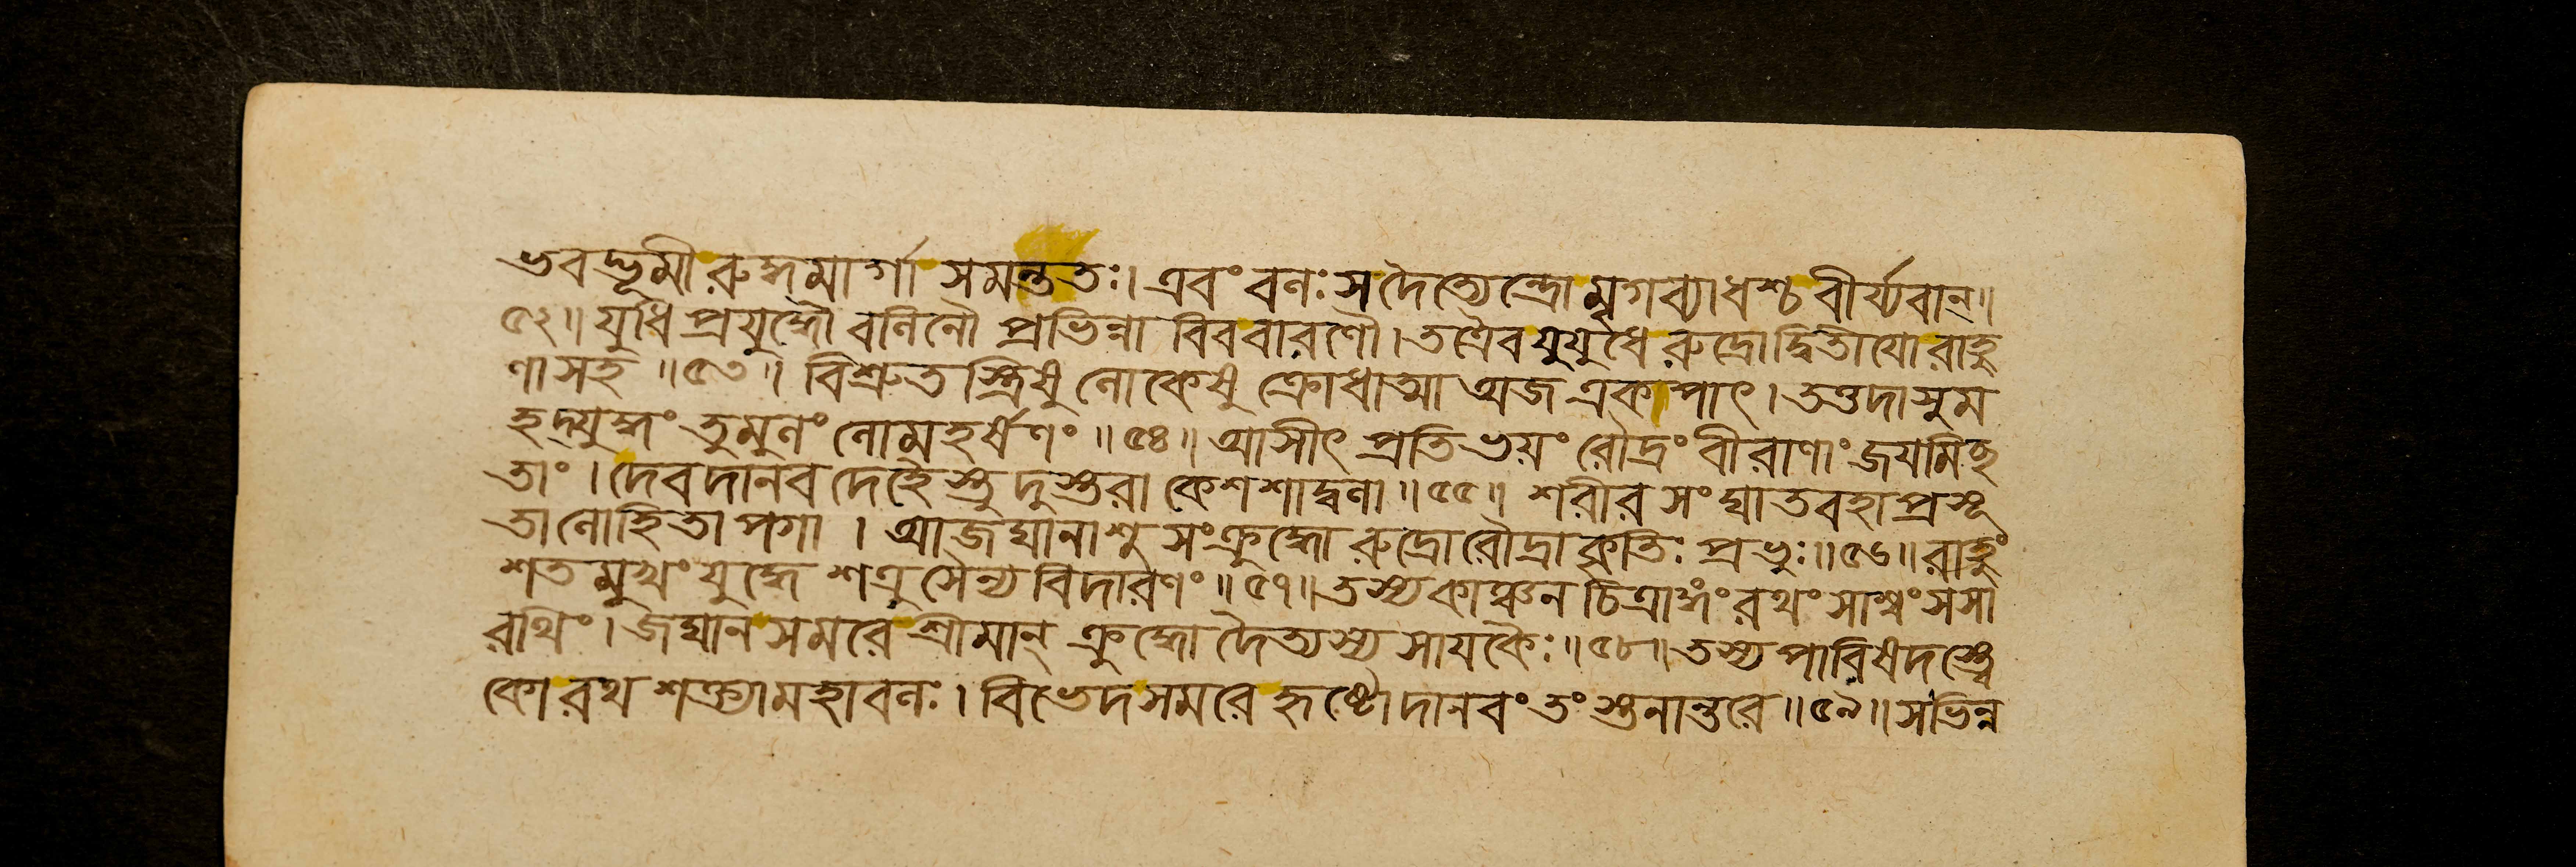 ভবদ্ভূমী রুদ্ধমার্গা সমন্ততঃ। এবং বলঃ স দৈত্যেন্দ্রো মৃগব্যাধশ্চ বীর্য্যবান্॥
৫২॥ যুধি প্রযুদ্ধৌ বলিনৌ প্রভিন্না বিববারণৌ। তত্রৈব যুযুধে রুদ্রো দ্বিতীযো রাহু
ণা সহ॥৫৩॥ বিশ্রুত স্ত্রিষু লোকেষু ক্রোধাত্মা অজ একাপাৎ। তত্তদাসুম
হদ্যুদ্ধং তুমুলং লোমহর্ষণং॥৫৪॥ আসীৎ প্রতিভয়ং রৌদ্রং বীরাণাং জযমিছ
তাং। দেবদানবদেহৈস্তু দুস্তরা কেশশাদ্বলা॥৫৫॥ শরীরসংঘাতবহা প্রসূ
তা লোহিতাপগা। আজঘানাশু সংক্রুদ্ধো রুদ্রো রৌদ্রাকৃতিঃ প্রভুঃ॥৫৬॥ রাহুং
শতমুখং যুদ্ধে শত্রুসৈন্যবিদারণং॥৫৭॥ তস্য কাঞ্চনচিত্রাঙ্গং রথং সাশ্বং সসা
রথিং। জঘান সমরে শ্রীমান্ ক্রুদ্ধো দৈত্যস্য সাযকৈঃ॥৫৮॥ তস্য পারিষদস্ত্বে
কো রথশক্ত্যা মহাবলঃ। বিভেদ সমরে হৃষ্টো দানবং তং স্তনান্তরে॥৫৯॥ সভিন্ন